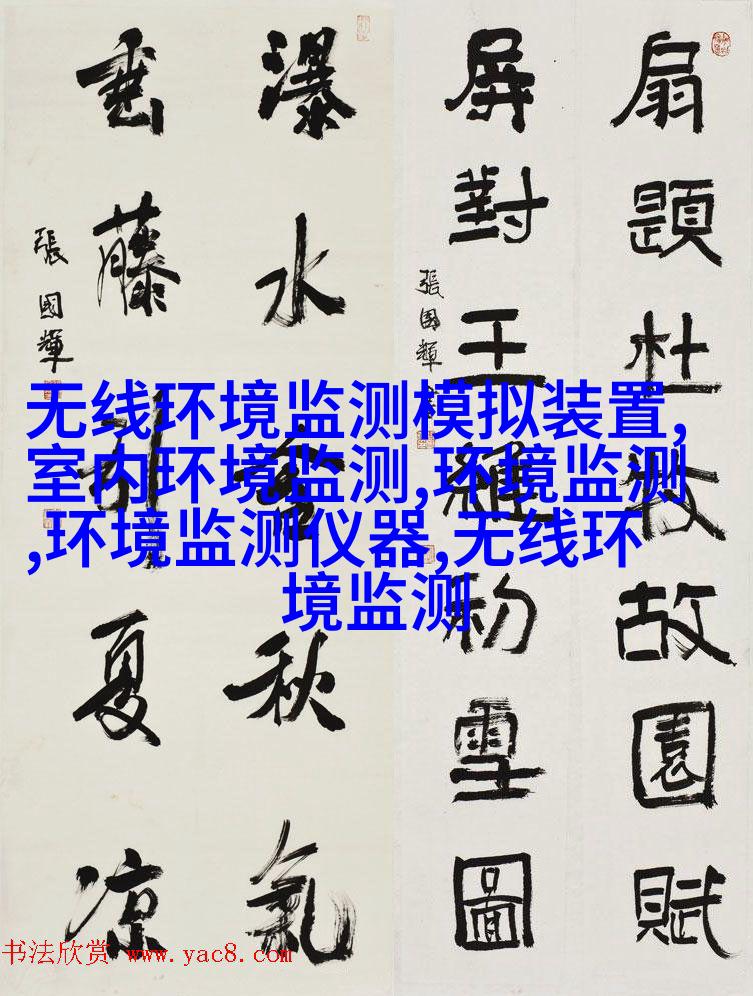 扇題杜牧故園賦
屏對王維初雪圖
張國輝
瀑水含秋氣
垂藤引夏凉
張國輝
无线环境监测模拟装置,
室内环境监测,环境监测
,环境监测仪器,无线环
境监测
书法欣赏 www.yac8.com